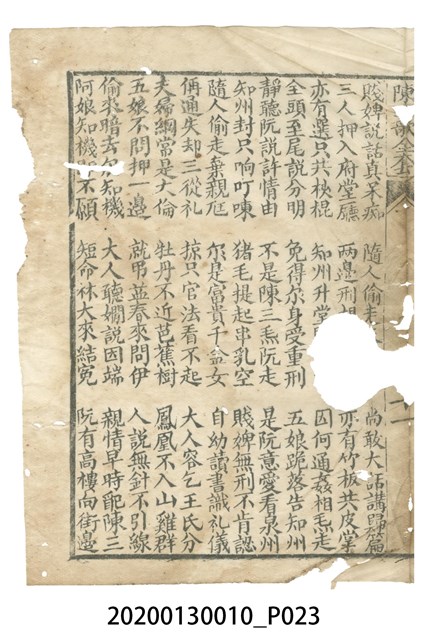 陳
賤婢說話真不痴 隨人偷 尚敢大話講歸篇
三人押入府堂廳 兩邊刑 亦有竹板共皮掌
亦有選只共梜棍 知州升堂 因何通姦相毛走
全頭至尾說分明 免得尔身受重刑 五娘跪落告知州
靜聽阮說許情由 不是陳三毛阮走 是阮意愛看泉州
知州封只响叮噹 猪毛提起串乳空 賤婢無刑不肯認
隨人偷走棄親 尔是富貴千金女 自幼讀書識礼儀
偁通失却三從礼 掠只官法看不起 大人容乞王氏分
夫婦綱常是大倫 牡丹不近芭蕉樹 鳳凰不入山雞群
五娘不問押一邊 就吊益春來問伊 人說無針不引線
偷來暗去尔知機 大人聽嫺說因端 親情早時配陳三
阿娘知機不願 短命林大來結寃 阮有高樓向街邊
20200130010_P023